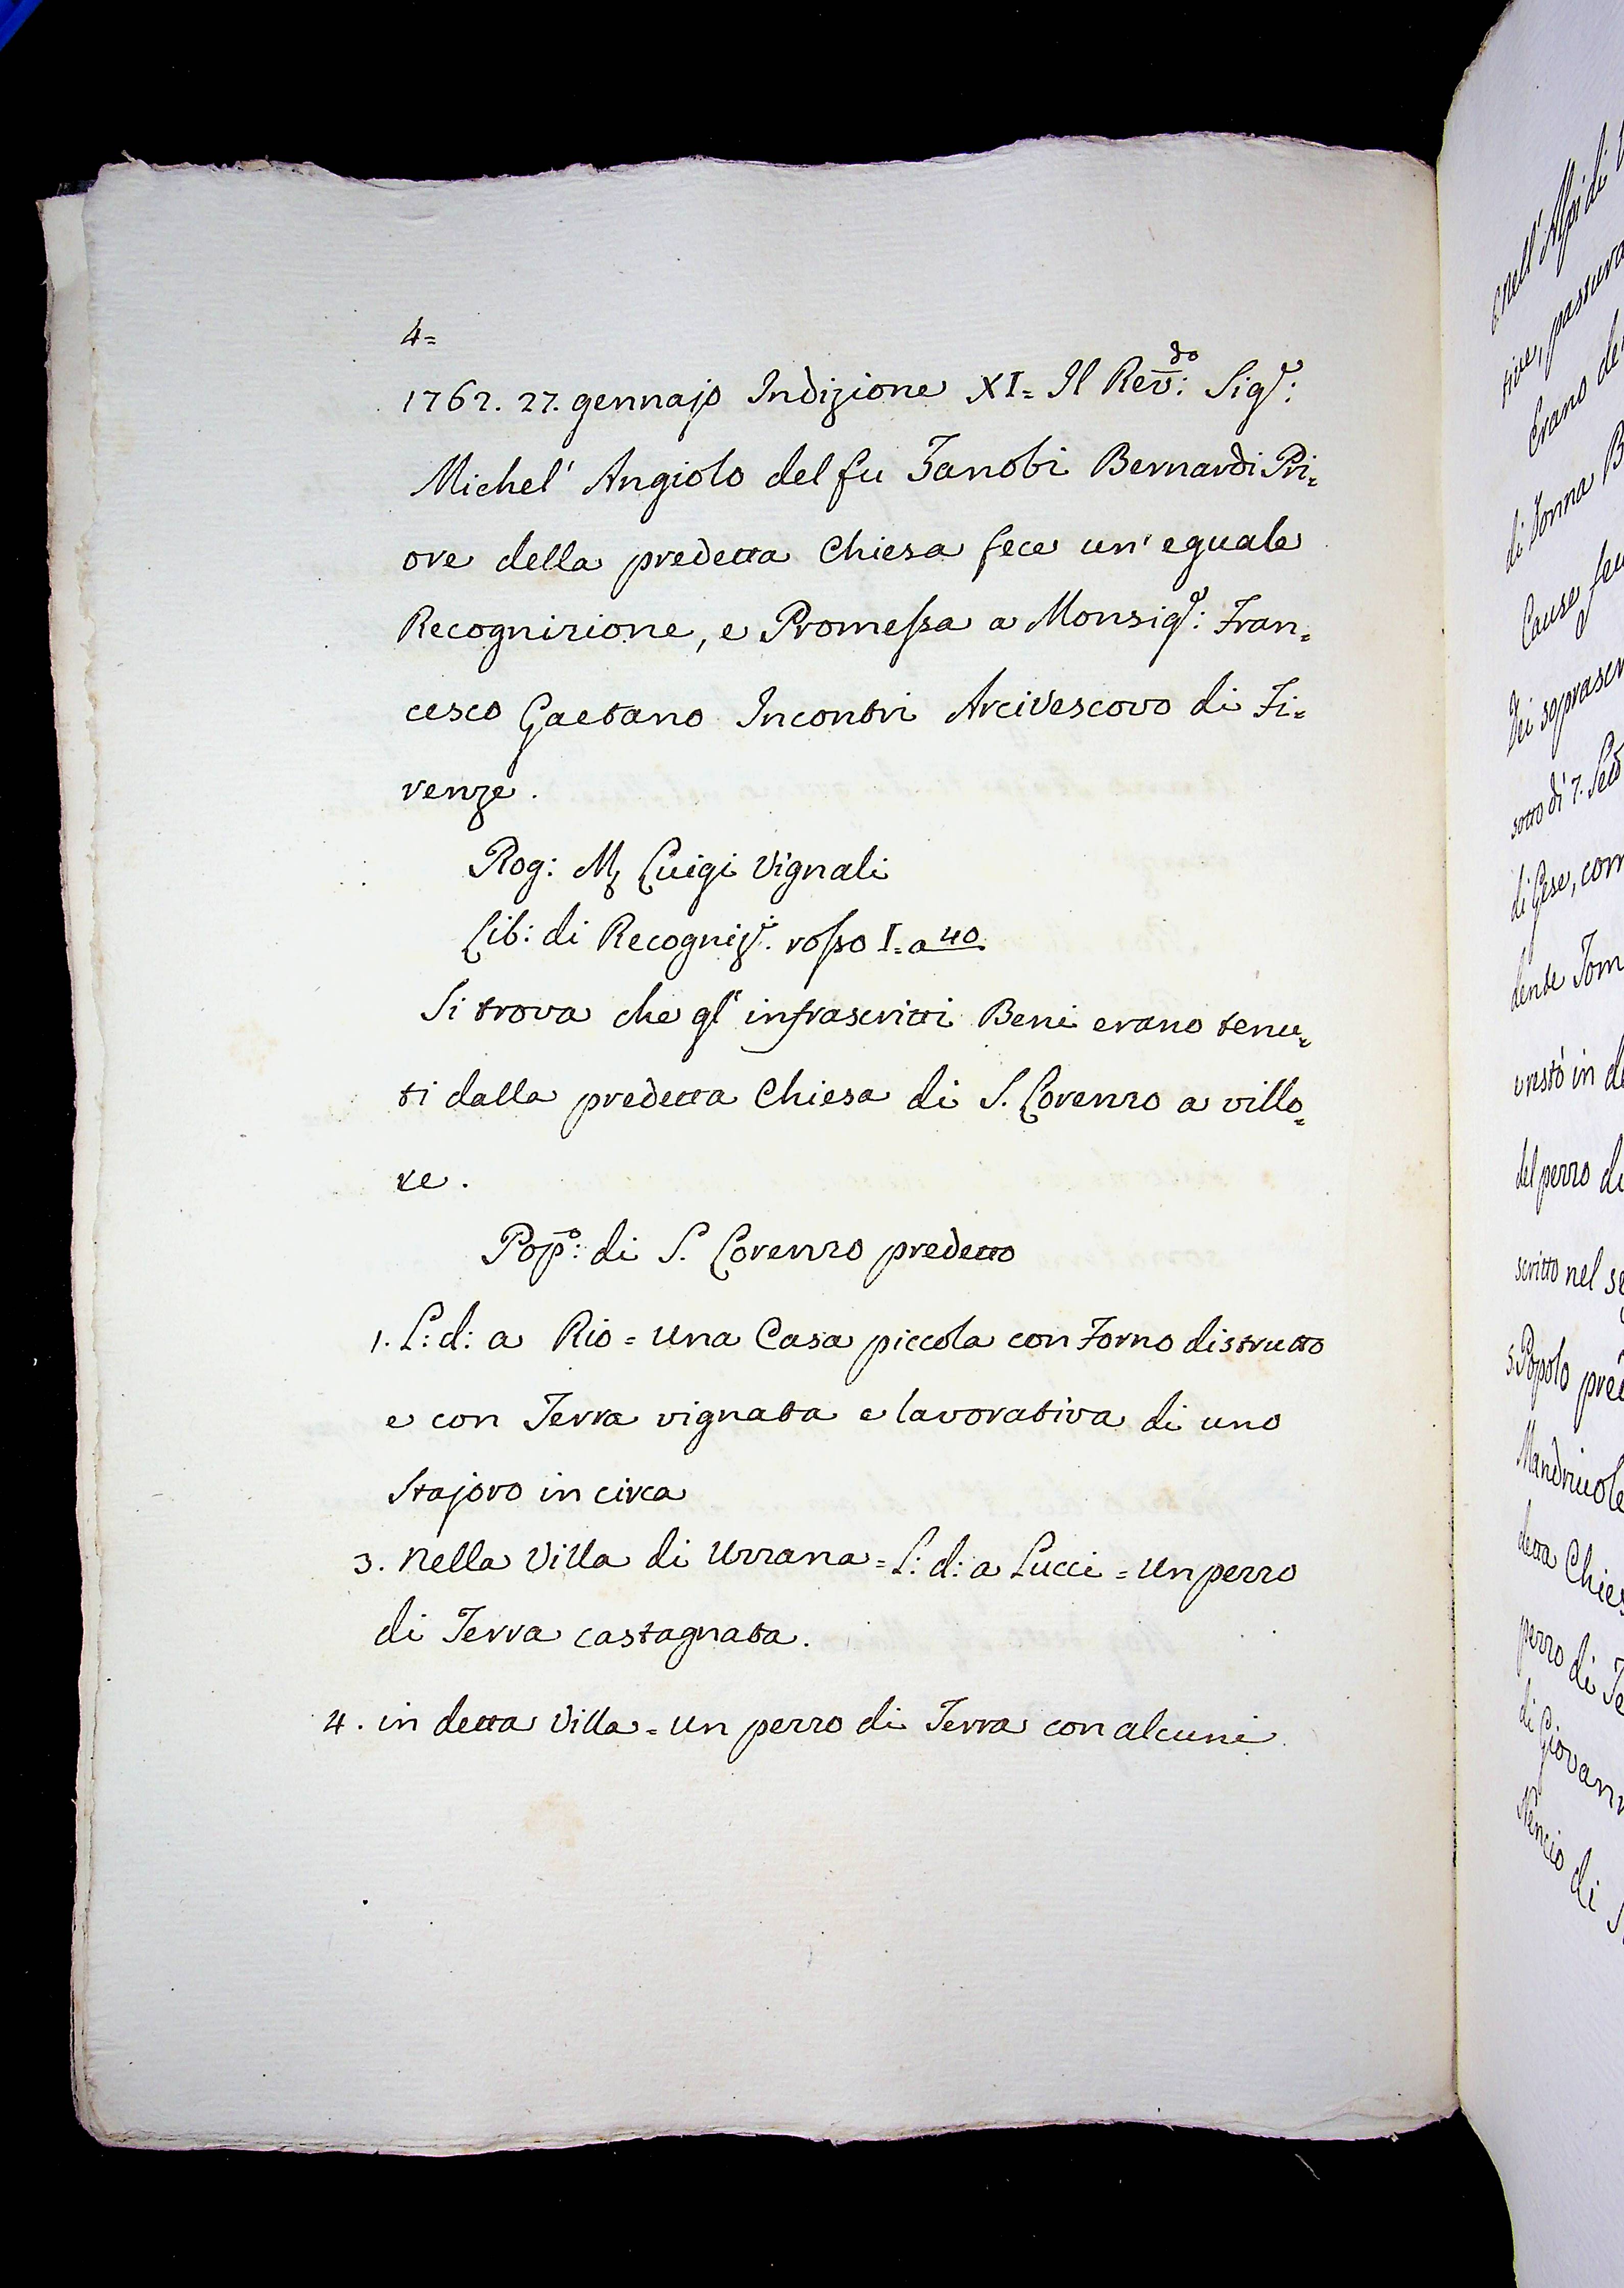 4=
1762. 27. gennajo Indizione XI= Il Rev:do Sigr:
Michel' Angiolo del fu Zanobi Bernardi Pri=
ore della predetta Chiesa fece un' eguale
Recognizione, e Promessa a Monsigr: Fran=
cesco Gaetano Incontri Arcivescovo di Fi=
renze.
Rog: Mr Luigi Vignali
Lib: di Recognizi. rosso I. a 40.
Si trova che gl' infrascritti Beni erano tenu=
ti dalla predetta Chiesa di S. Lorenzo a villo=
re.
Popo: di S. Lorenzo predetto
1. L: d: a Rio = Una Casa piccola con Forno distrutto
e con Terra vignata e lavorativa di uno
Stajoro in circa
3. Nella Villa di Uzzana = L: d: a Lucci = Un pezzo
di Terra castagnata.
4. in detta Villa = Un pezzo di Terra con alcuni
nell' Alpi di
tive, pastura
Erano de
di Donna B
Cause
dei soprascr
sotto dì 7.
di Gese, com
dente Tom
resto in d
del pezzo di
scritto nel se
5. Popolo pred
Mandriuole
detta Chies
pezzo di Te
di Giovann
Nencio di S